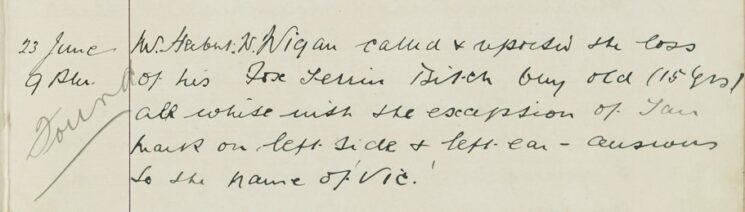 23 June Mr. Herbert. W. Wigan called & reported the loss
9 Am. of his Fox Terrier Bitch very old (15 yrs)
Found all white with the exception of Tan
mark on left side & left ear - answers
to the name of 'Vic.'